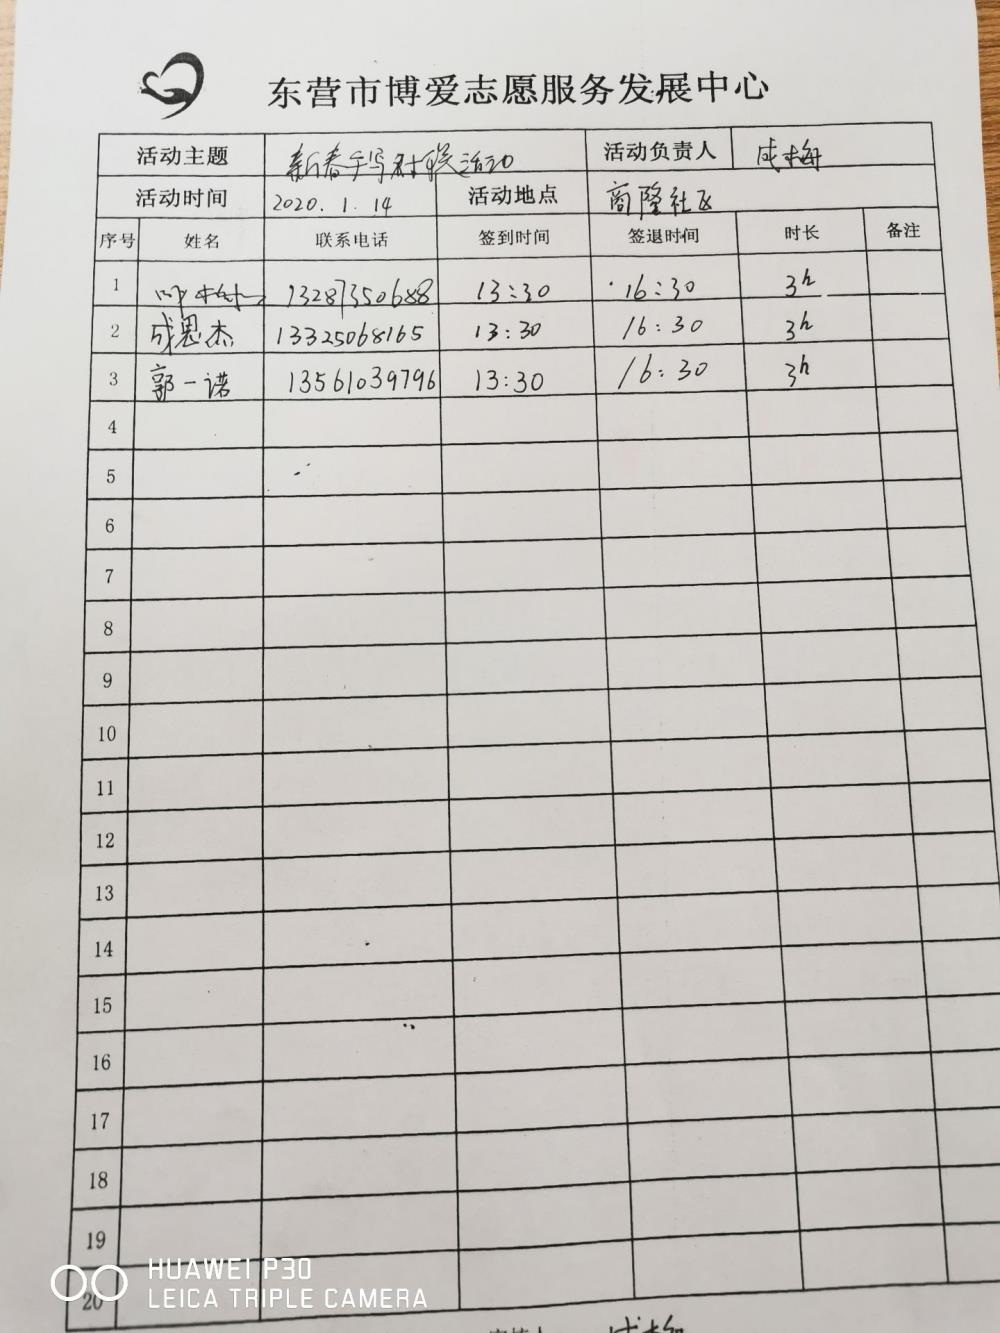 东营市博爱志愿服务发展中心
活动主题 新春手写对联活动 活动负责人 成梅
活动时间 2020.1.14 活动地点 商隆社区
序号 姓名 联系电话 签到时间 签退时间 时长 备注
1 13287350688 13:30 16:30 3h
2 成思杰 13325068165 13:30 16:30 3h
3 郭一诺 13561039796 13:30 16:30 3h
4
5
6
7
8
9
10
11
12
13
14
15
16
17
18
19
20
HUAWEI P30
LEICA TRIPLE CAMERA